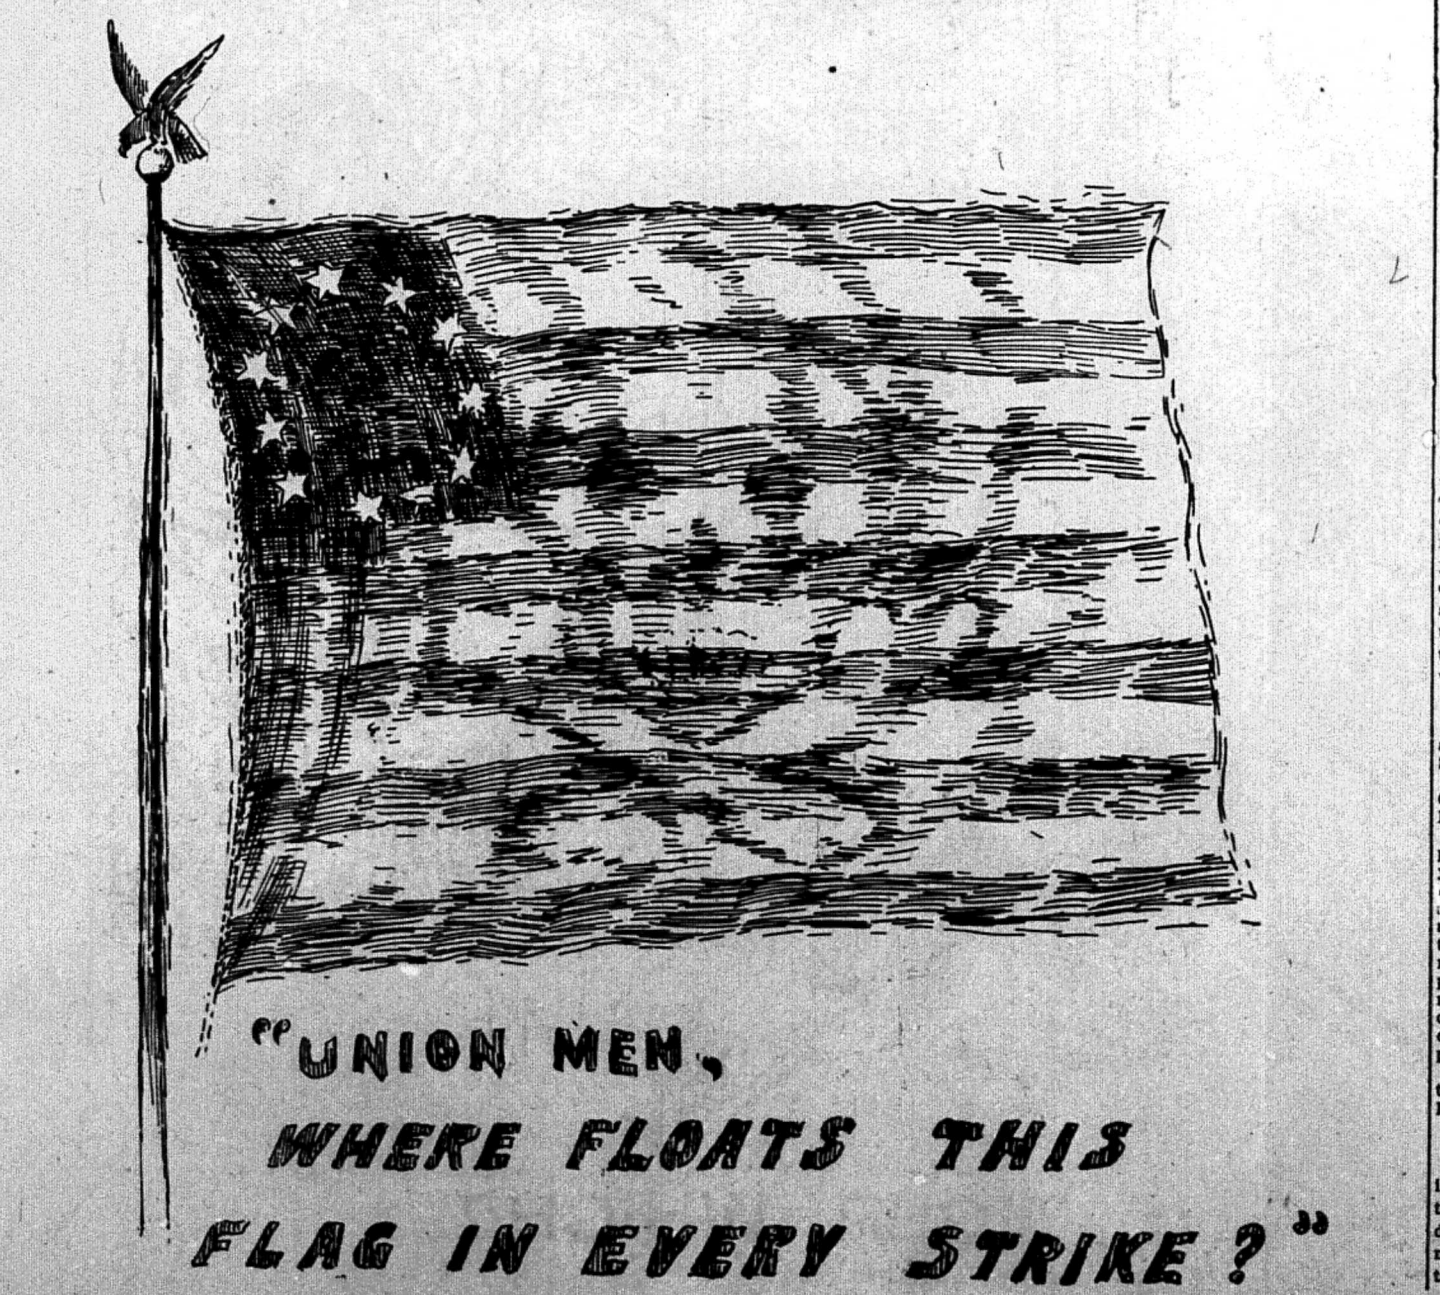 “UNION MEN,
WHERE FLOATS THIS
FLAG IN EVERY STRIKE?”